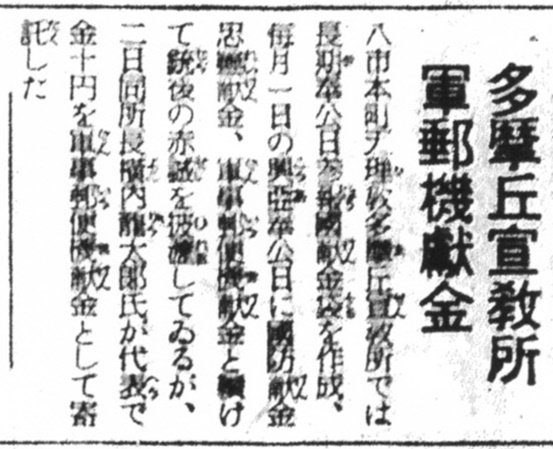 多摩丘宣教所
軍郵機献金
八市本町天理教多摩丘宣教所では
長期奉公日参報國献金袋を作成、
毎月一日の興亜奉公日に國防献金
恩献金、軍事郵便機献金と續け
て銃後の赤誠を披瀝してゐるが、
二日同所長横内太郎氏が代表で
金十円を軍事郵便機献金として寄
託した